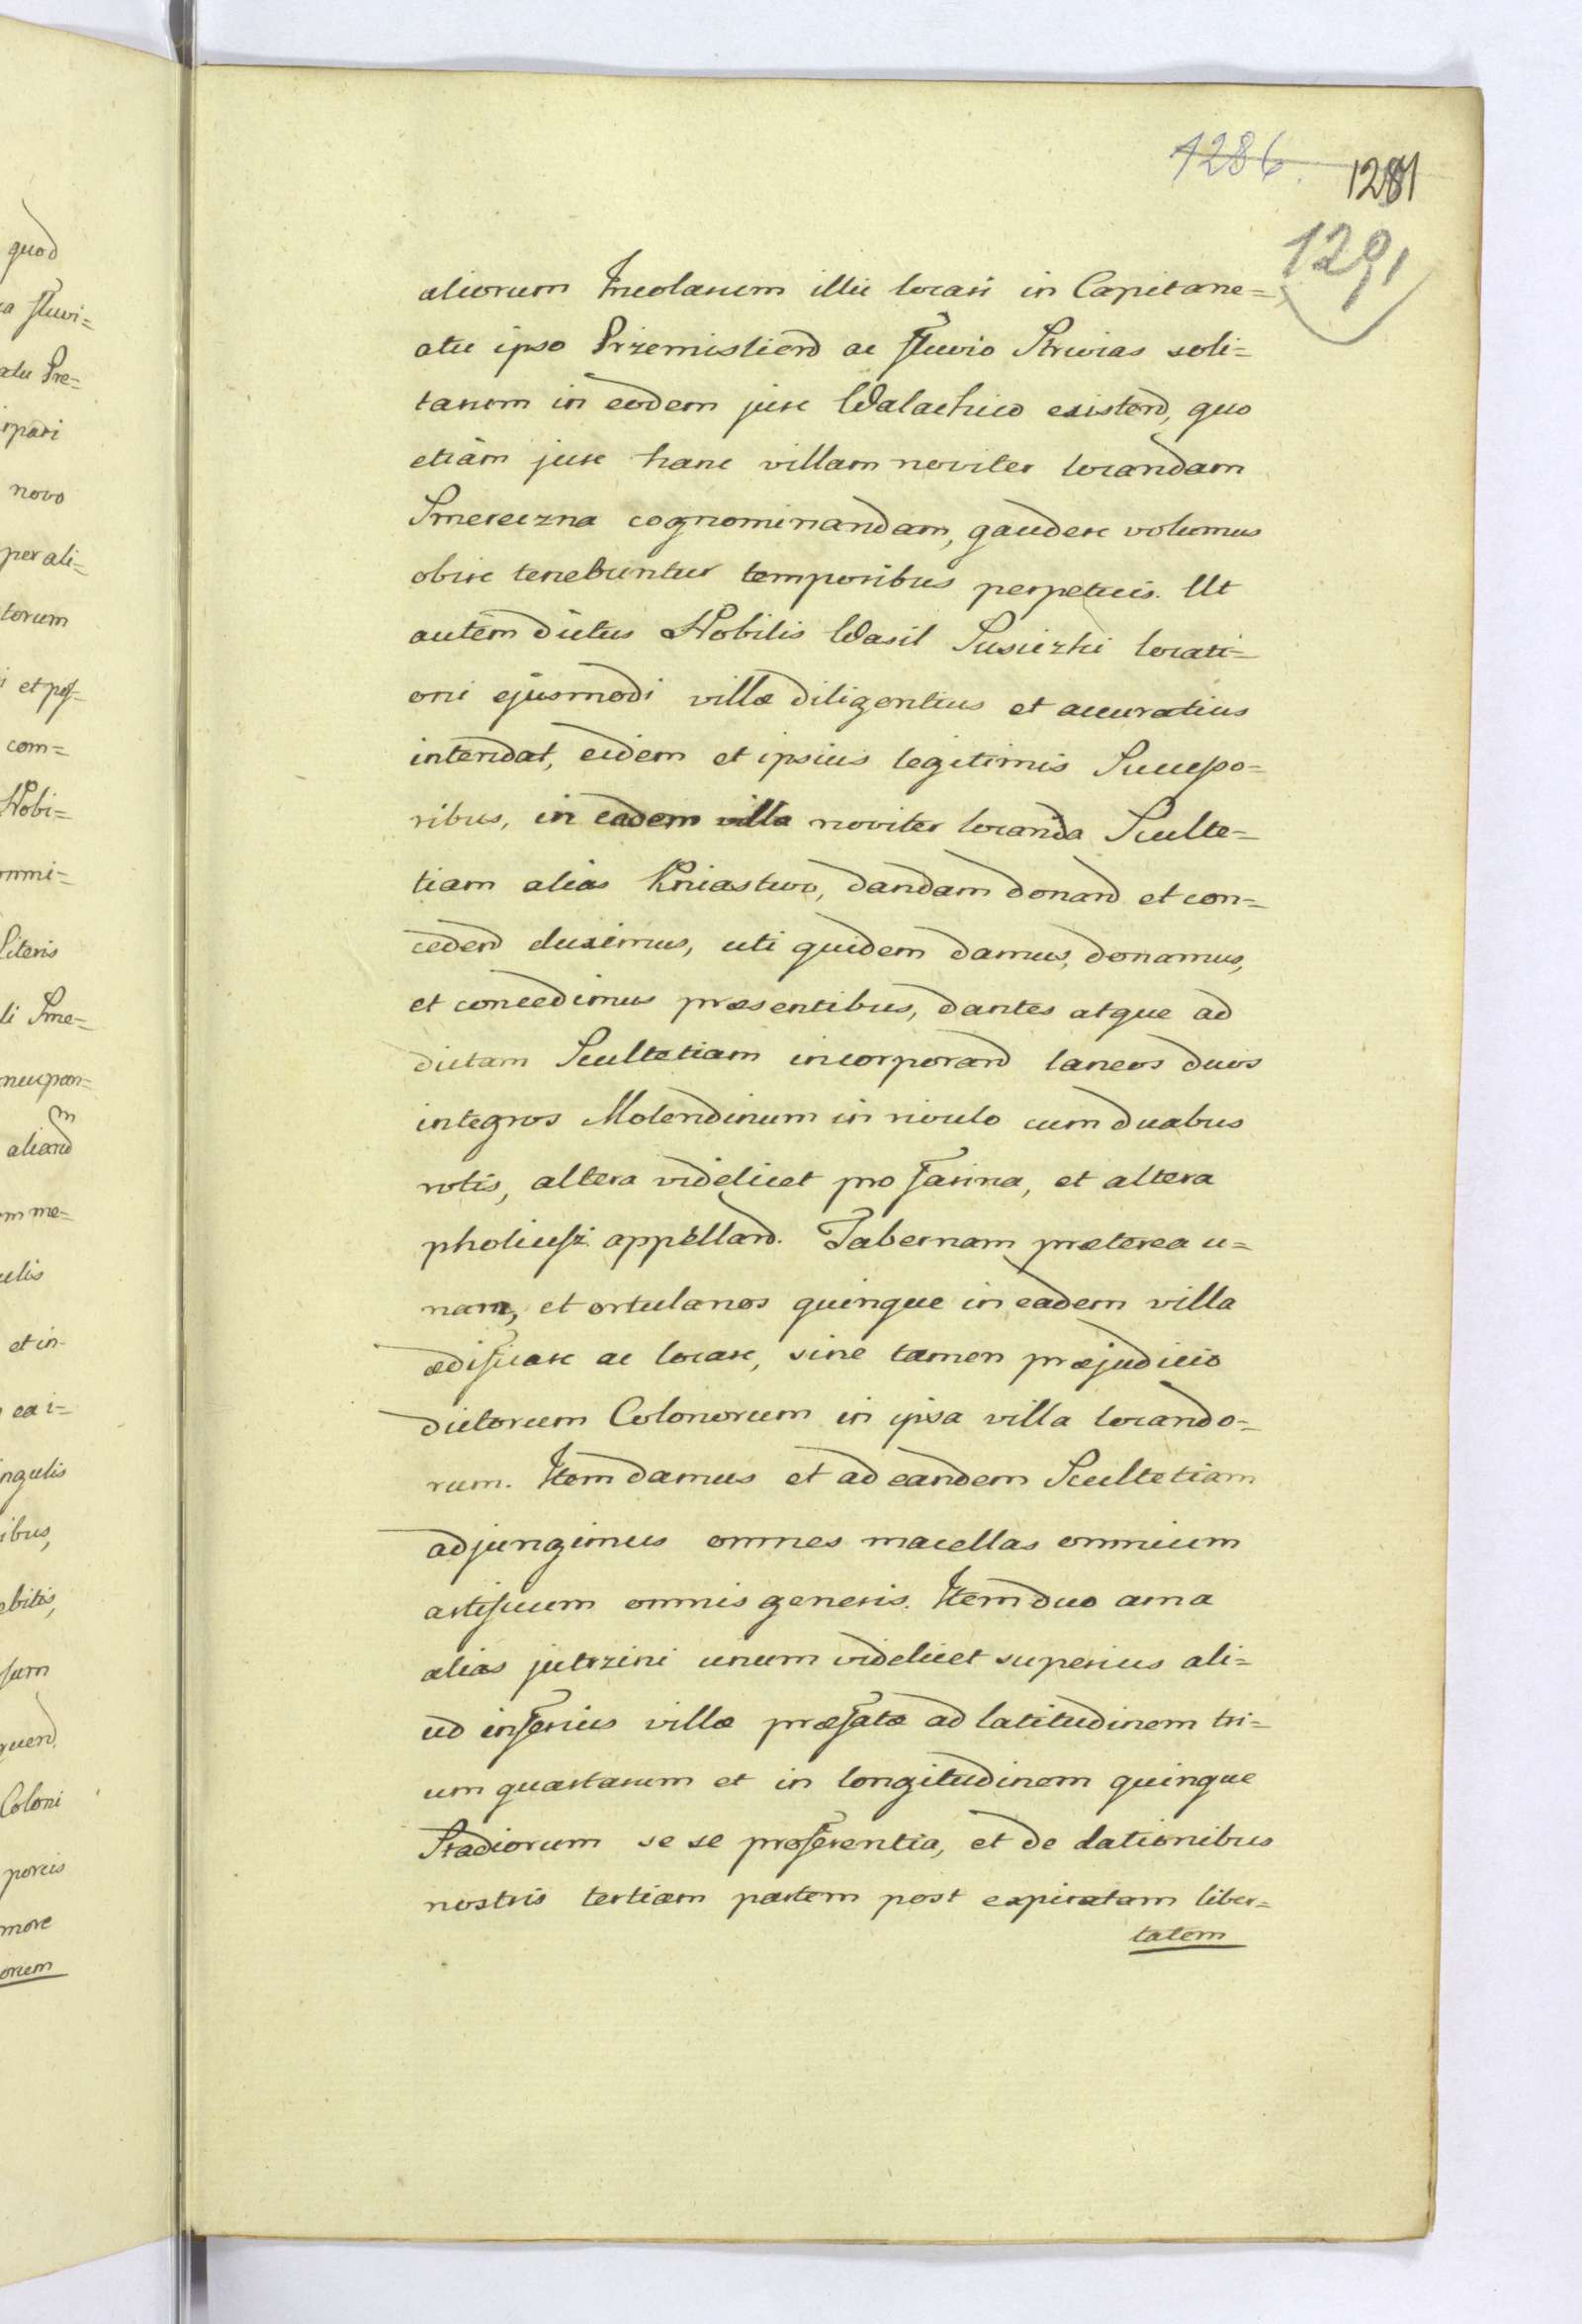 1286.
1291
1291
aliorum Incolarum illic locari in Capitane=
atu ipso Przemisliend ac fluvio Strwias soli=
tarum in eodem jure Walachico existend, quo
etiam jure hanc villam noviter locandam
Smereczna cognominandam, gaudere volumus
obire tenebuntur temporibus perpetuis. Ut
autem dictus Nobilis Wasil Susiczki locati=
oni ejusmodi villæ diligentius et accuratius
intendat, eidem et ipsius legitimis Successo=
ribus, in eadem villa noviter locanda Sculte=
tiam alias Kniastwo, dandam donand et con=
cedend duximus, uti quidem damus, donamus,
et concedimus præsentibus, dantes atque ad
dictam Scultetiam incorporand laneos duos
integros Molendinum in rivulo cum duabus
rotis, altera videlicet pro farina, et altera
pholiusz appelland. Tabernam præterea u=
nam, et ortulanos quinque in eadem villa
ædificare ac locare, sine tamen præjudicio
dictorum Colonorum in ipsa villa locando=
rum. Item damus et ad eandem Scultetiam
adjungimus omnes macellas omnium
artificum omnis generis. Item duo arna
alias jutrzini unum videlicet superius ali=
ud inferius villæ præfatæ ad latitudinem tri=
um quartarum et in longitudinem quinque
Stadiorum se se proferentia, et de dationibus
nostris tertiam partem post expiratam liber=
tatem
quod
a fluvi=
atu Pre=
ipari
novo
per ali=
torum
i et pos=
com=
Nobi=
mmi=
Literis
li Sme=
ncupan=
m
aliand
m me=
ulis
et in=
ea i=
ngulis
ibus,
ebitis,
sum
quend
Coloni
porcis
more
onem